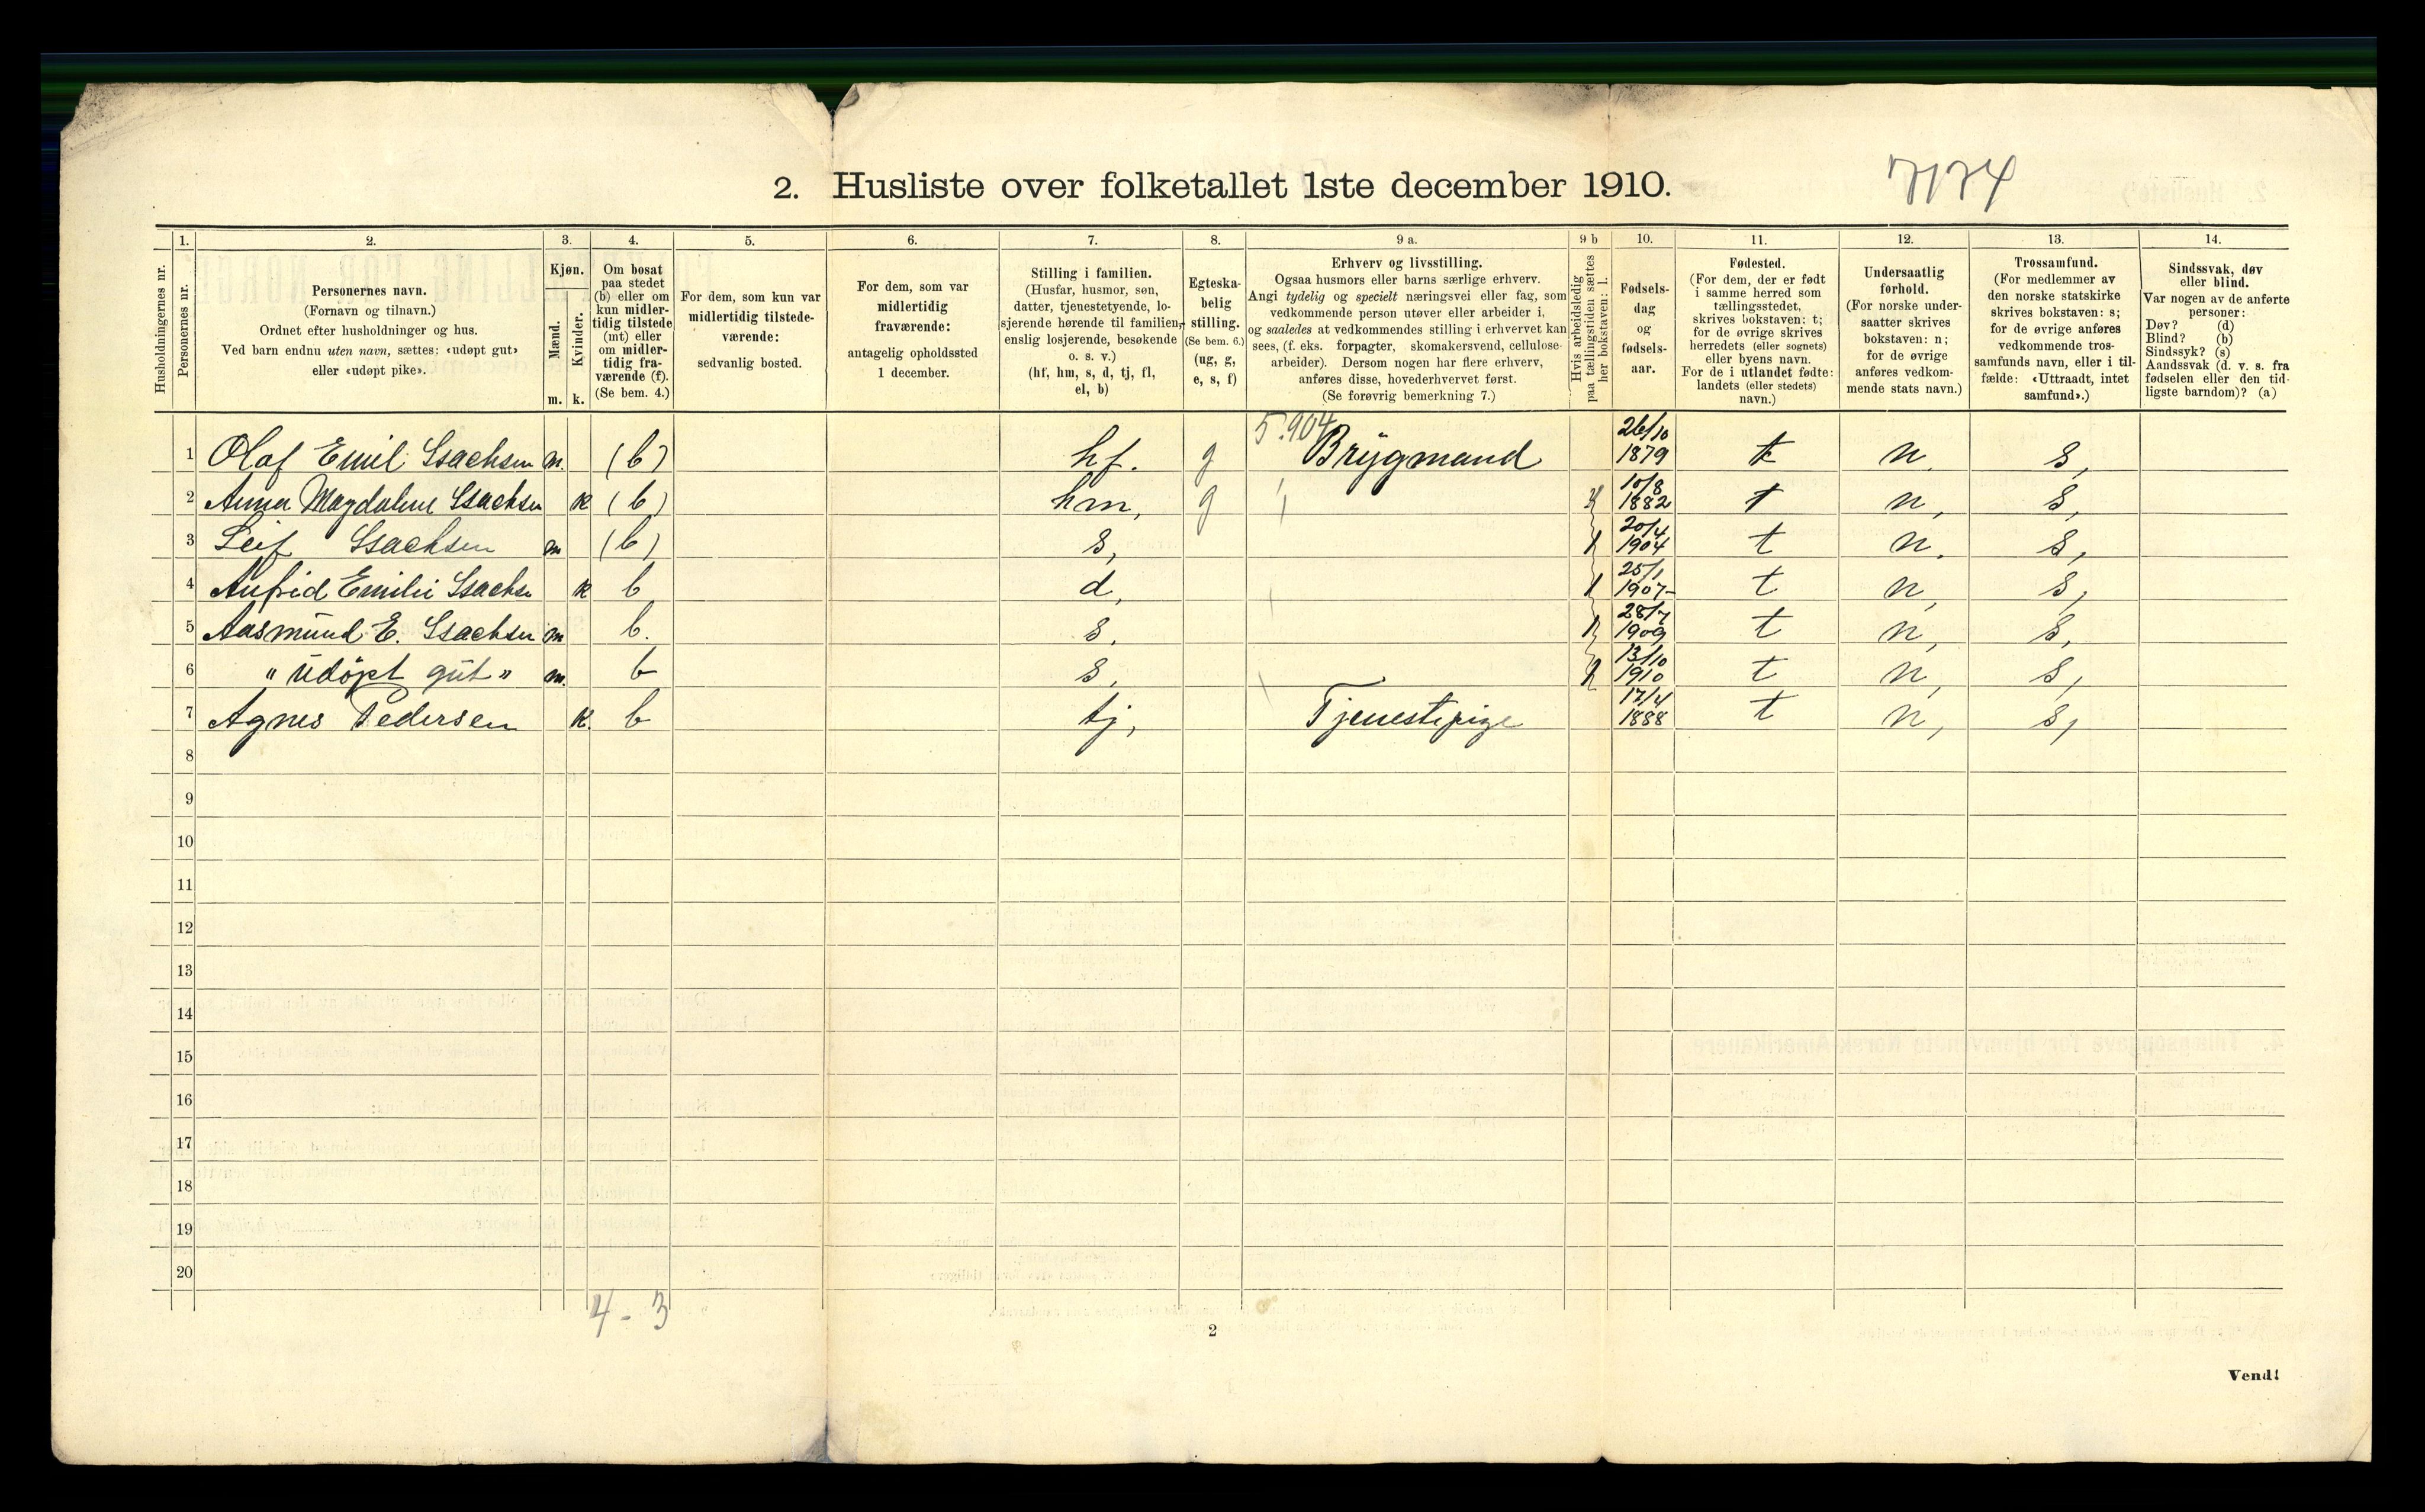 2. Husliste over folketallet 1ste december 1910.
Husholdningernes nr.
1.
Personernes nr.
2.
Personernes navn.
(Fornavn og tilnavn.)
Ordnet efter husholdninger og hus.
Ved barn endnu uten navn, sættes: «udøpt gut»
eller «udøpt pike».
3.
Kjøn.
Mænd.
Kvinder.
m. k.
4.
Om bosat
paa stedet
(b) eller om
kun midler-
tidig tilstede
(mt) eller
om midler-
tidig fra-
værende (f).
(Se bem. 4.)
5.
For dem, som kun var
midlertidig tilstede-
værende:
sedvanlig bosted.
6.
For dem, som var
midlertidig
fraværende:
antagelig opholdssted
1 december.
7.
Stilling i familien.
(Husfar, husmor, søn,
datter, tjenestetyende, lo-
sjerende hørende til familien,
enslig losjerende, besøkende
o. s. v.)
(hf, hm, s, d, tj, fl,
el, b)
8.
Egteska-
belig
stilling.
(Se bem. 6.)
(ug, g,
e, s, f)
9 a.
Erhverv og livsstilling.
Ogsaa husmors eller barns særlige erhverv.
Angi tydelig og specielt næringsvei eller fag, som
vedkommende person utøver eller arbeider i,
og saaledes at vedkommendes stilling i erhvervet kan
sees, (f. eks. forpagter, skomakersvend, cellulose-
arbeider). Dersom nogen har flere erhverv,
anføres disse, hovederhvervet først.
(Se forøvrig bemerkning 7.)
9 b
Hvis arbeidsledig
paa tællingstiden sættes
her bokstaven: l.
10.
Fødsels-
dag
og
fødsels-
aar.
11.
Fødested.
(For dem, der er født
i samme herred som
tællingsstedet,
skrives bokstaven: t;
for de øvrige skrives
herredets (eller sognets)
eller byens navn.
For de i utlandet fødte:
landets (eller stedets)
navn.)
12.
Undersaatlig
forhold.
(For norske under-
saatter skrives
bokstaven: n;
for de øvrige
anføres vedkom-
mende stats navn.)
13.
Trossamfund.
(For medlemmer av
den norske statskirke
skrives bokstaven: s;
for de øvrige anføres
vedkommende tros-
samfunds navn, eller i til-
fælde: «Uttraadt, intet
samfund».)
14.
Sindssvak, døv
eller blind.
Var nogen av de anførte
personer:
Døv? (d)
Blind? (b)
Sindssyk? (s)
Aandssvak (d. v. s. fra
fødselen eller den tid-
ligste barndom)? (a)
5.904
1 Olaf Emil Isachsen m. (b) hf. g Brygmand 26/10 1879 t n. s,
2 Anna Magdalene Isachsen k (b) hm, g 10/8 1882 t n, s,
3 Leif Isachsen m (b) s, 20/4 1904 t n. s,
4 Emilie Isachse k b d, 25/1 1907 t n, s,
5 Aasmund E. Isachsen m b. s. 28/7 1909 t n, s,
6 "udöpt gut" m. b s, 13/10 1910 t n, s,
7 Agnes Pedersen k. b tj, Tjenestepige 17/4 1888 t n, s,
8
9
10
11
12
13
14
15
16
17
18
19
20
4 - 3
2
Vend!